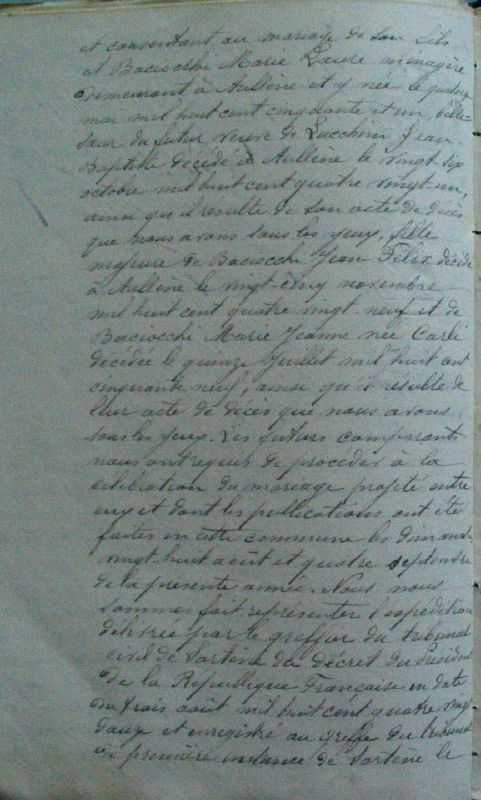 et consentant au mariage de son fils
et Baciocchi Marie Laure ménagère
demeurant à Aullène et y née le quatorze
mai mil huit cent cinquante et un, belle
sœur du futur veuve de Lucchini Jean
Baptiste décédé à Aullène le vingt six
octobre mil huit cent quatre vingt un,
ainsi qu'il résulte de son acte de décès
que nous avons sous les yeux, fille
majeure de Baciocchi Jean Félix décédé
à Aullène le vingt cinq novembre
mil huit cent quatre vingt neuf et de
Baciocchi Marie Jeanne née Carli
décédée le quinze Juillet mil huit cent
cinquante neuf, ainsi qu'il résulte de
leur acte de décès que nous avons
sous les yeux. Les futurs comparants
nous ont requis de procéder à la
célébration du mariage projeté entre
eux et dont les publications ont été
faites en cette commune les dimanches
vingt huit août et quatre septembre
de la présente année. Nous nous
sommes fait représenter l'expédition
délivrée par le greffier du tribunal
civil de Sartène du décret du Président
de la République Française en date
du trois août mil huit cent quatre vingt
douze et enregistré au greffe du tribunal
de première instance de Sartène le